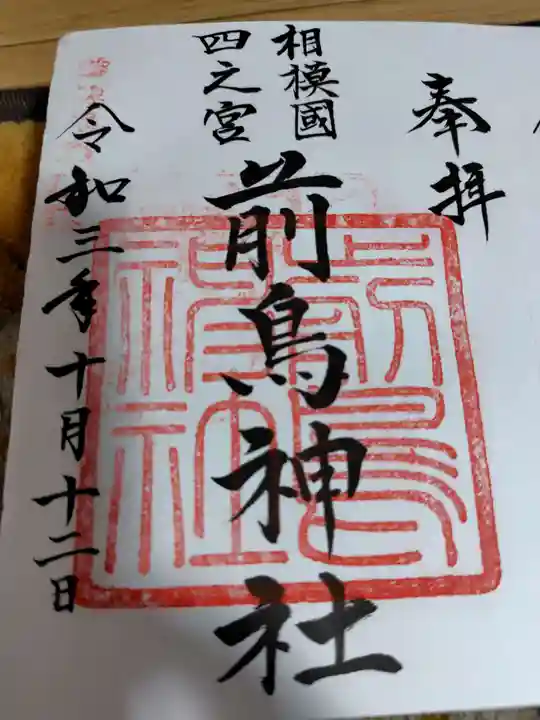 奉拝
相模國
四之宮
前鳥神社
令和三年十月十二日
前鳥
神社